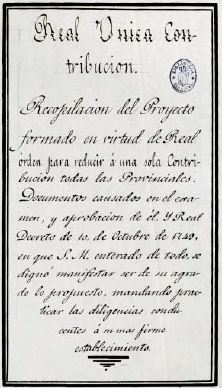 Real Vnica Con-
tribucion.
Recopilacion del Proyecto
formado en virtud de Real
orden para reducir á una sola Contri-
bucion todas las Provinciales.
Documentos causados en el exa-
men, y aprobacion de él. Y Real
Decreto de 10. de Octubre de 1749,
en que S. M. enterado de todo, se
dignó manifestar ser de su agra-
do lo propuesto, mandando prac-
ticar las diligencias condu-
centes á su mas firme
establecimiento.